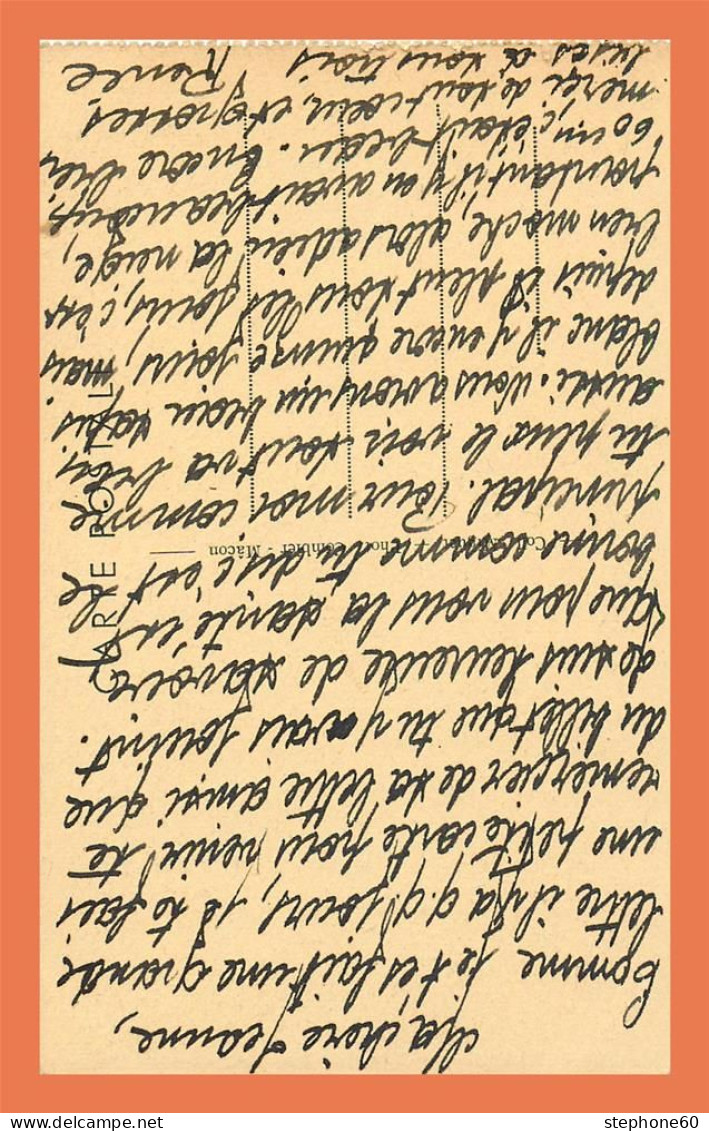 Ma chère Jeanne,
Comme je t'ai fait une grande
lettre il y a q.q. jours, je te fais
une petite carte pour venir te
remercier de ta lettre ainsi que
du billet que tu y avais joint.
Je suis heureuse de savoir
que pour vous la santé est
bonne comme tu dis c'est le
principal. Pour moi comme
tu peux le voir tout va bien
aussi. Nous avons un beau tapis
blanc il y encore quinze jours, mais
depuis il pleut tous les jours, c'est
bien moche, alors adieu la neige,
pourtant il y en avait beaucoup,
c'était beau. Encore bien
merci de tout cœur, et grosses
bises à vous trois
Renée
CARTE POSTALE
Combier - Mâcon
stephone60